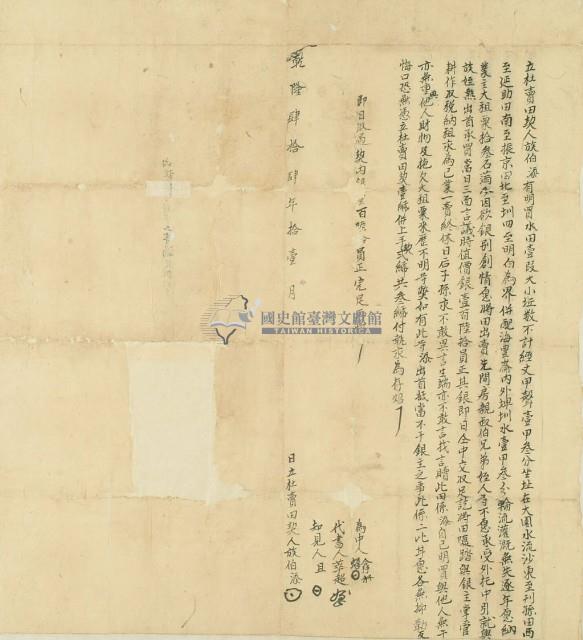 立杜賣田契人族伯添有明買水田壹段大小坵數不計經丈甲聲壹甲叁分坐址在大圳水流沙東至刊孫田西
至延助田南至振京田北至圳四至明白為界併配海豐庄內外埤圳水壹甲叁分輪流灌溉無失逐年愿納
業主大租粟拾叁石滿今因欲銀別創情愿將田出賣先問房親叔伯兄弟侄人等不愿承受外托中引就與
族姪無出首承買當日三面言議時值價銀壹百陸拾員正其銀即日仝中交收足訖將田隨踏與銀主掌管
耕作收稅納租永為己業一賣終休日后子孫永不敢異言生端亦不敢言找言贖此田係添自己明買與他人無干
亦無重典他人財物及拖欠大租粟來歷不明等弊如有此等添出首抵當不干銀主之事此係二比甘愿各無抑勒反
悔口恐無憑立杜賣田契壹紙併上手契弍紙共叁紙付執永為存炤
即日收過契內銀 百 拾員正完足
乾隆肆拾肆年拾壹月
日立杜賣田契人族伯添
為中人
代書人華超
知見人且
國史館臺灣文獻館
TAIWAN HISTORICA